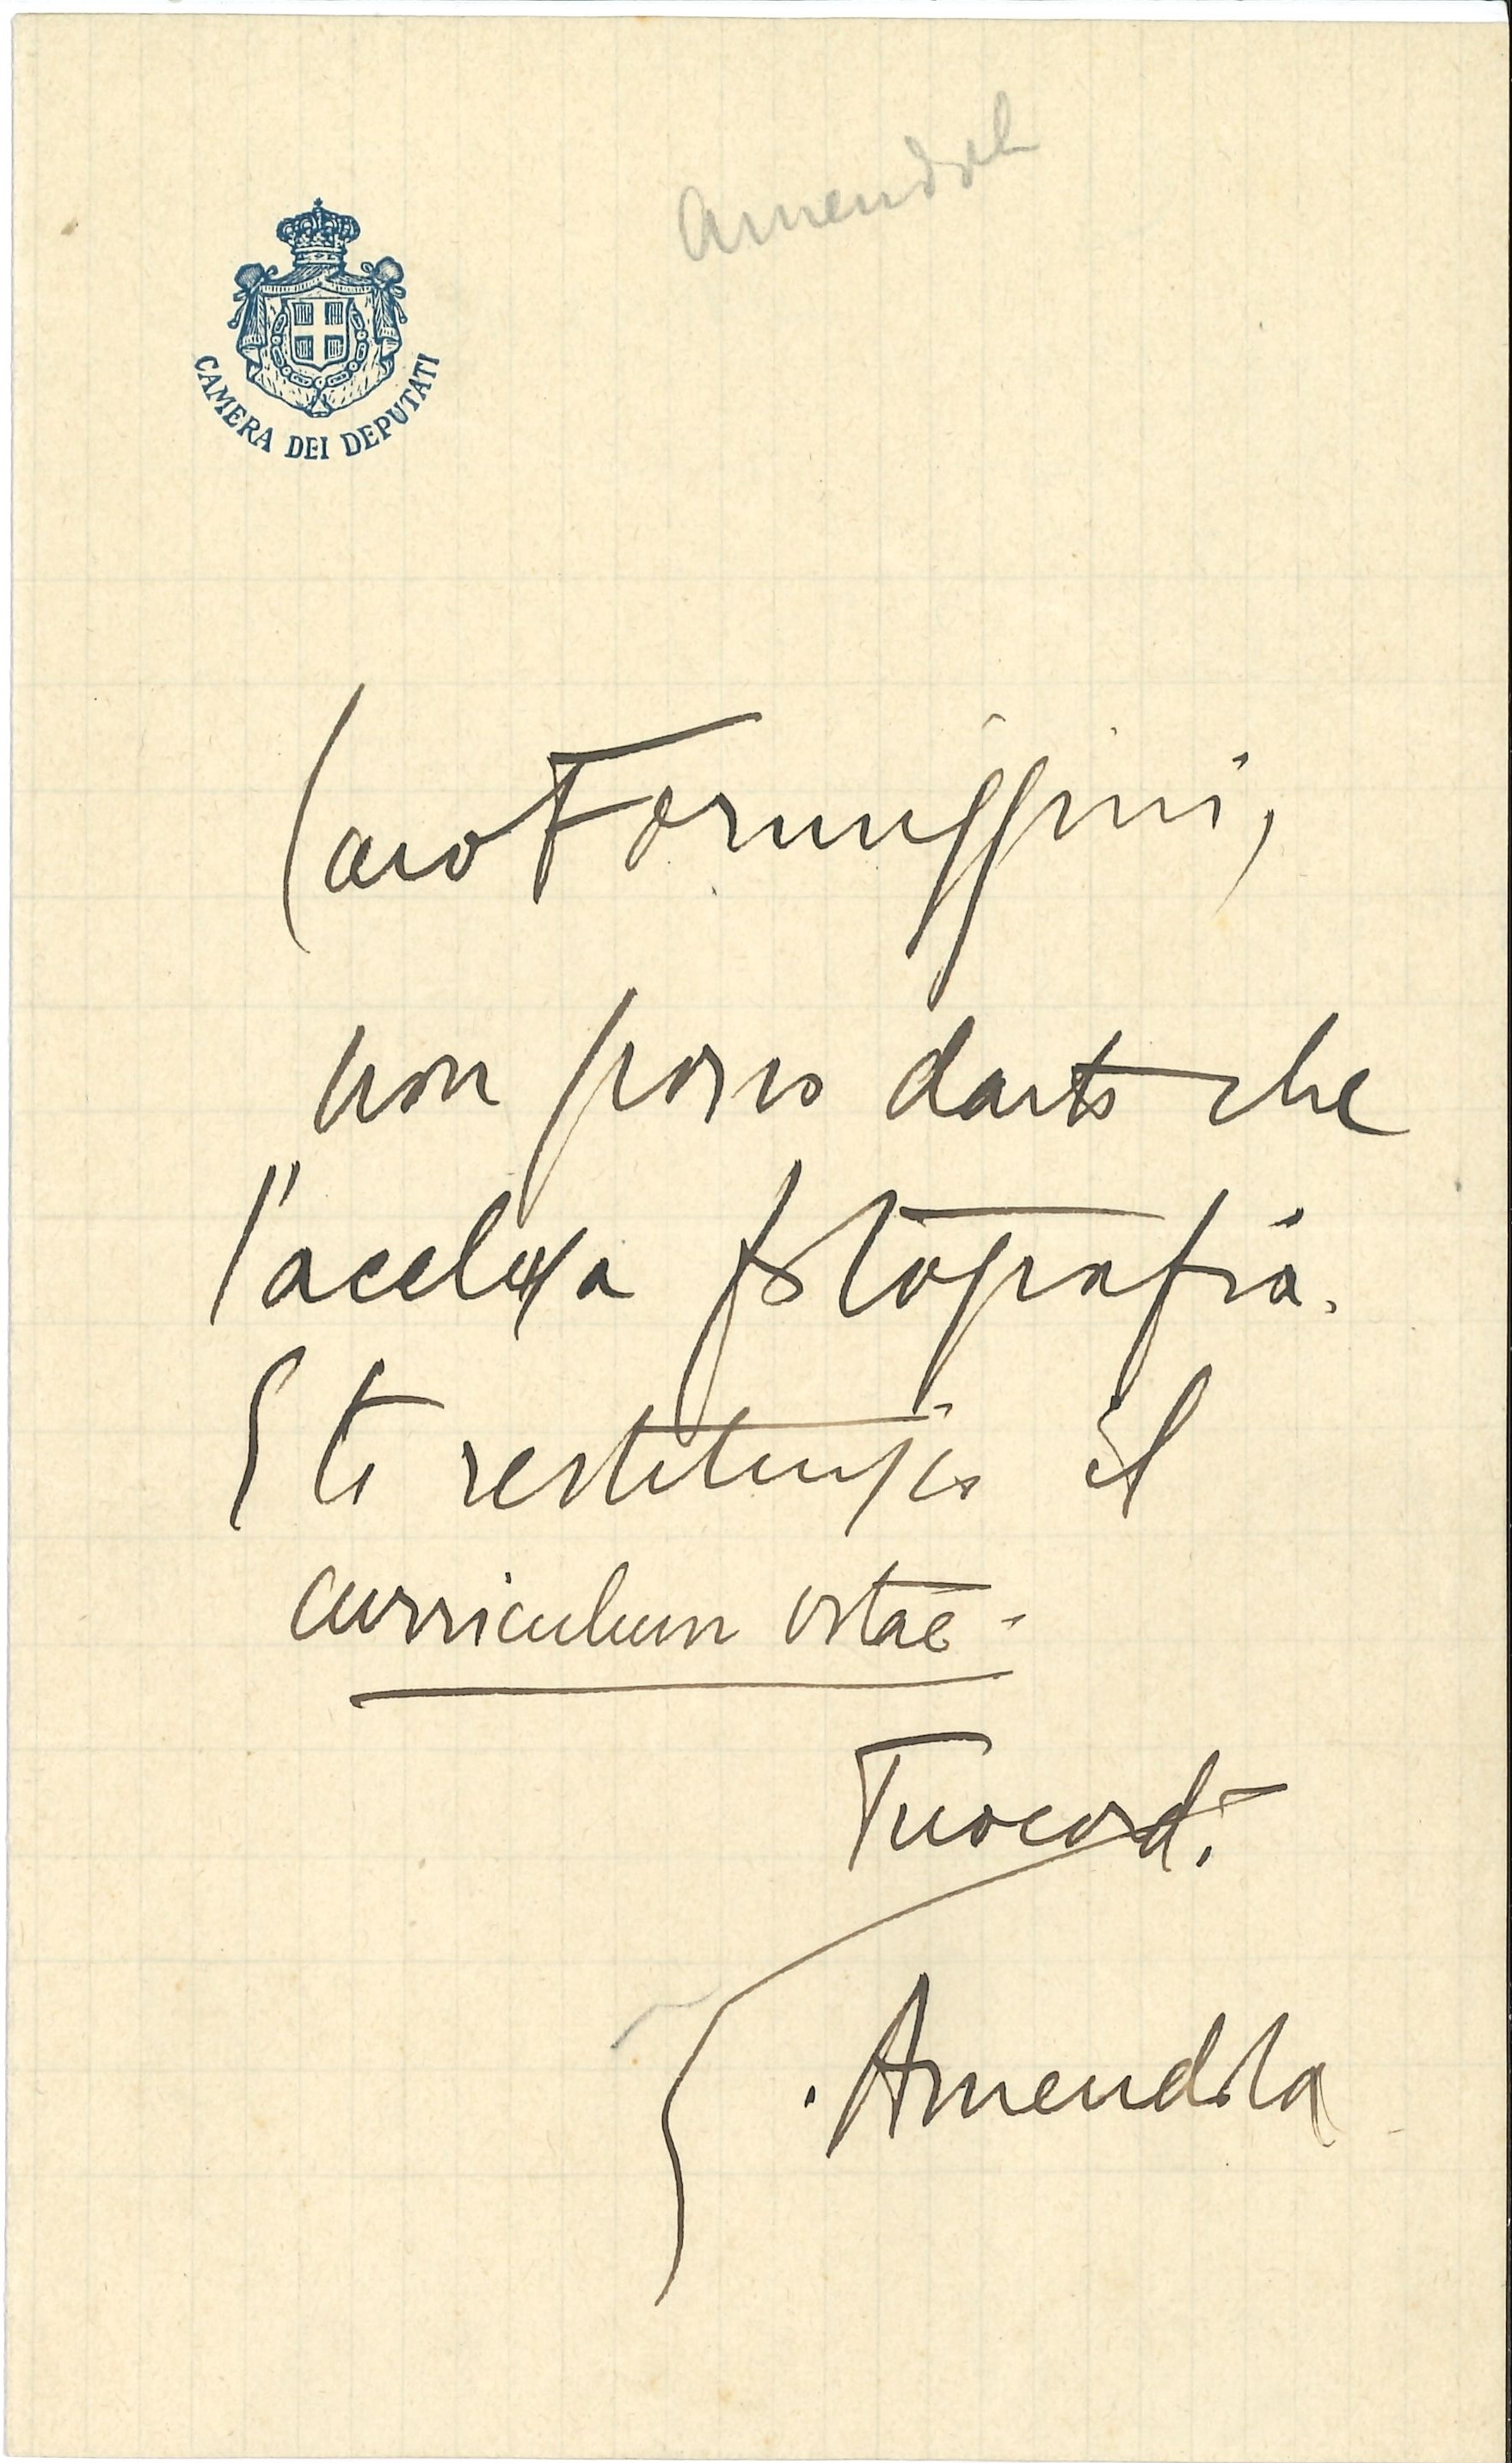 Amendola
CAMERA DEI DEPUTATI
Caro Formiggini,
non posso darti che
l'acclusa fotografia.
E ti restituisco il
curriculum vitae.
Tuo cord.
Amendola